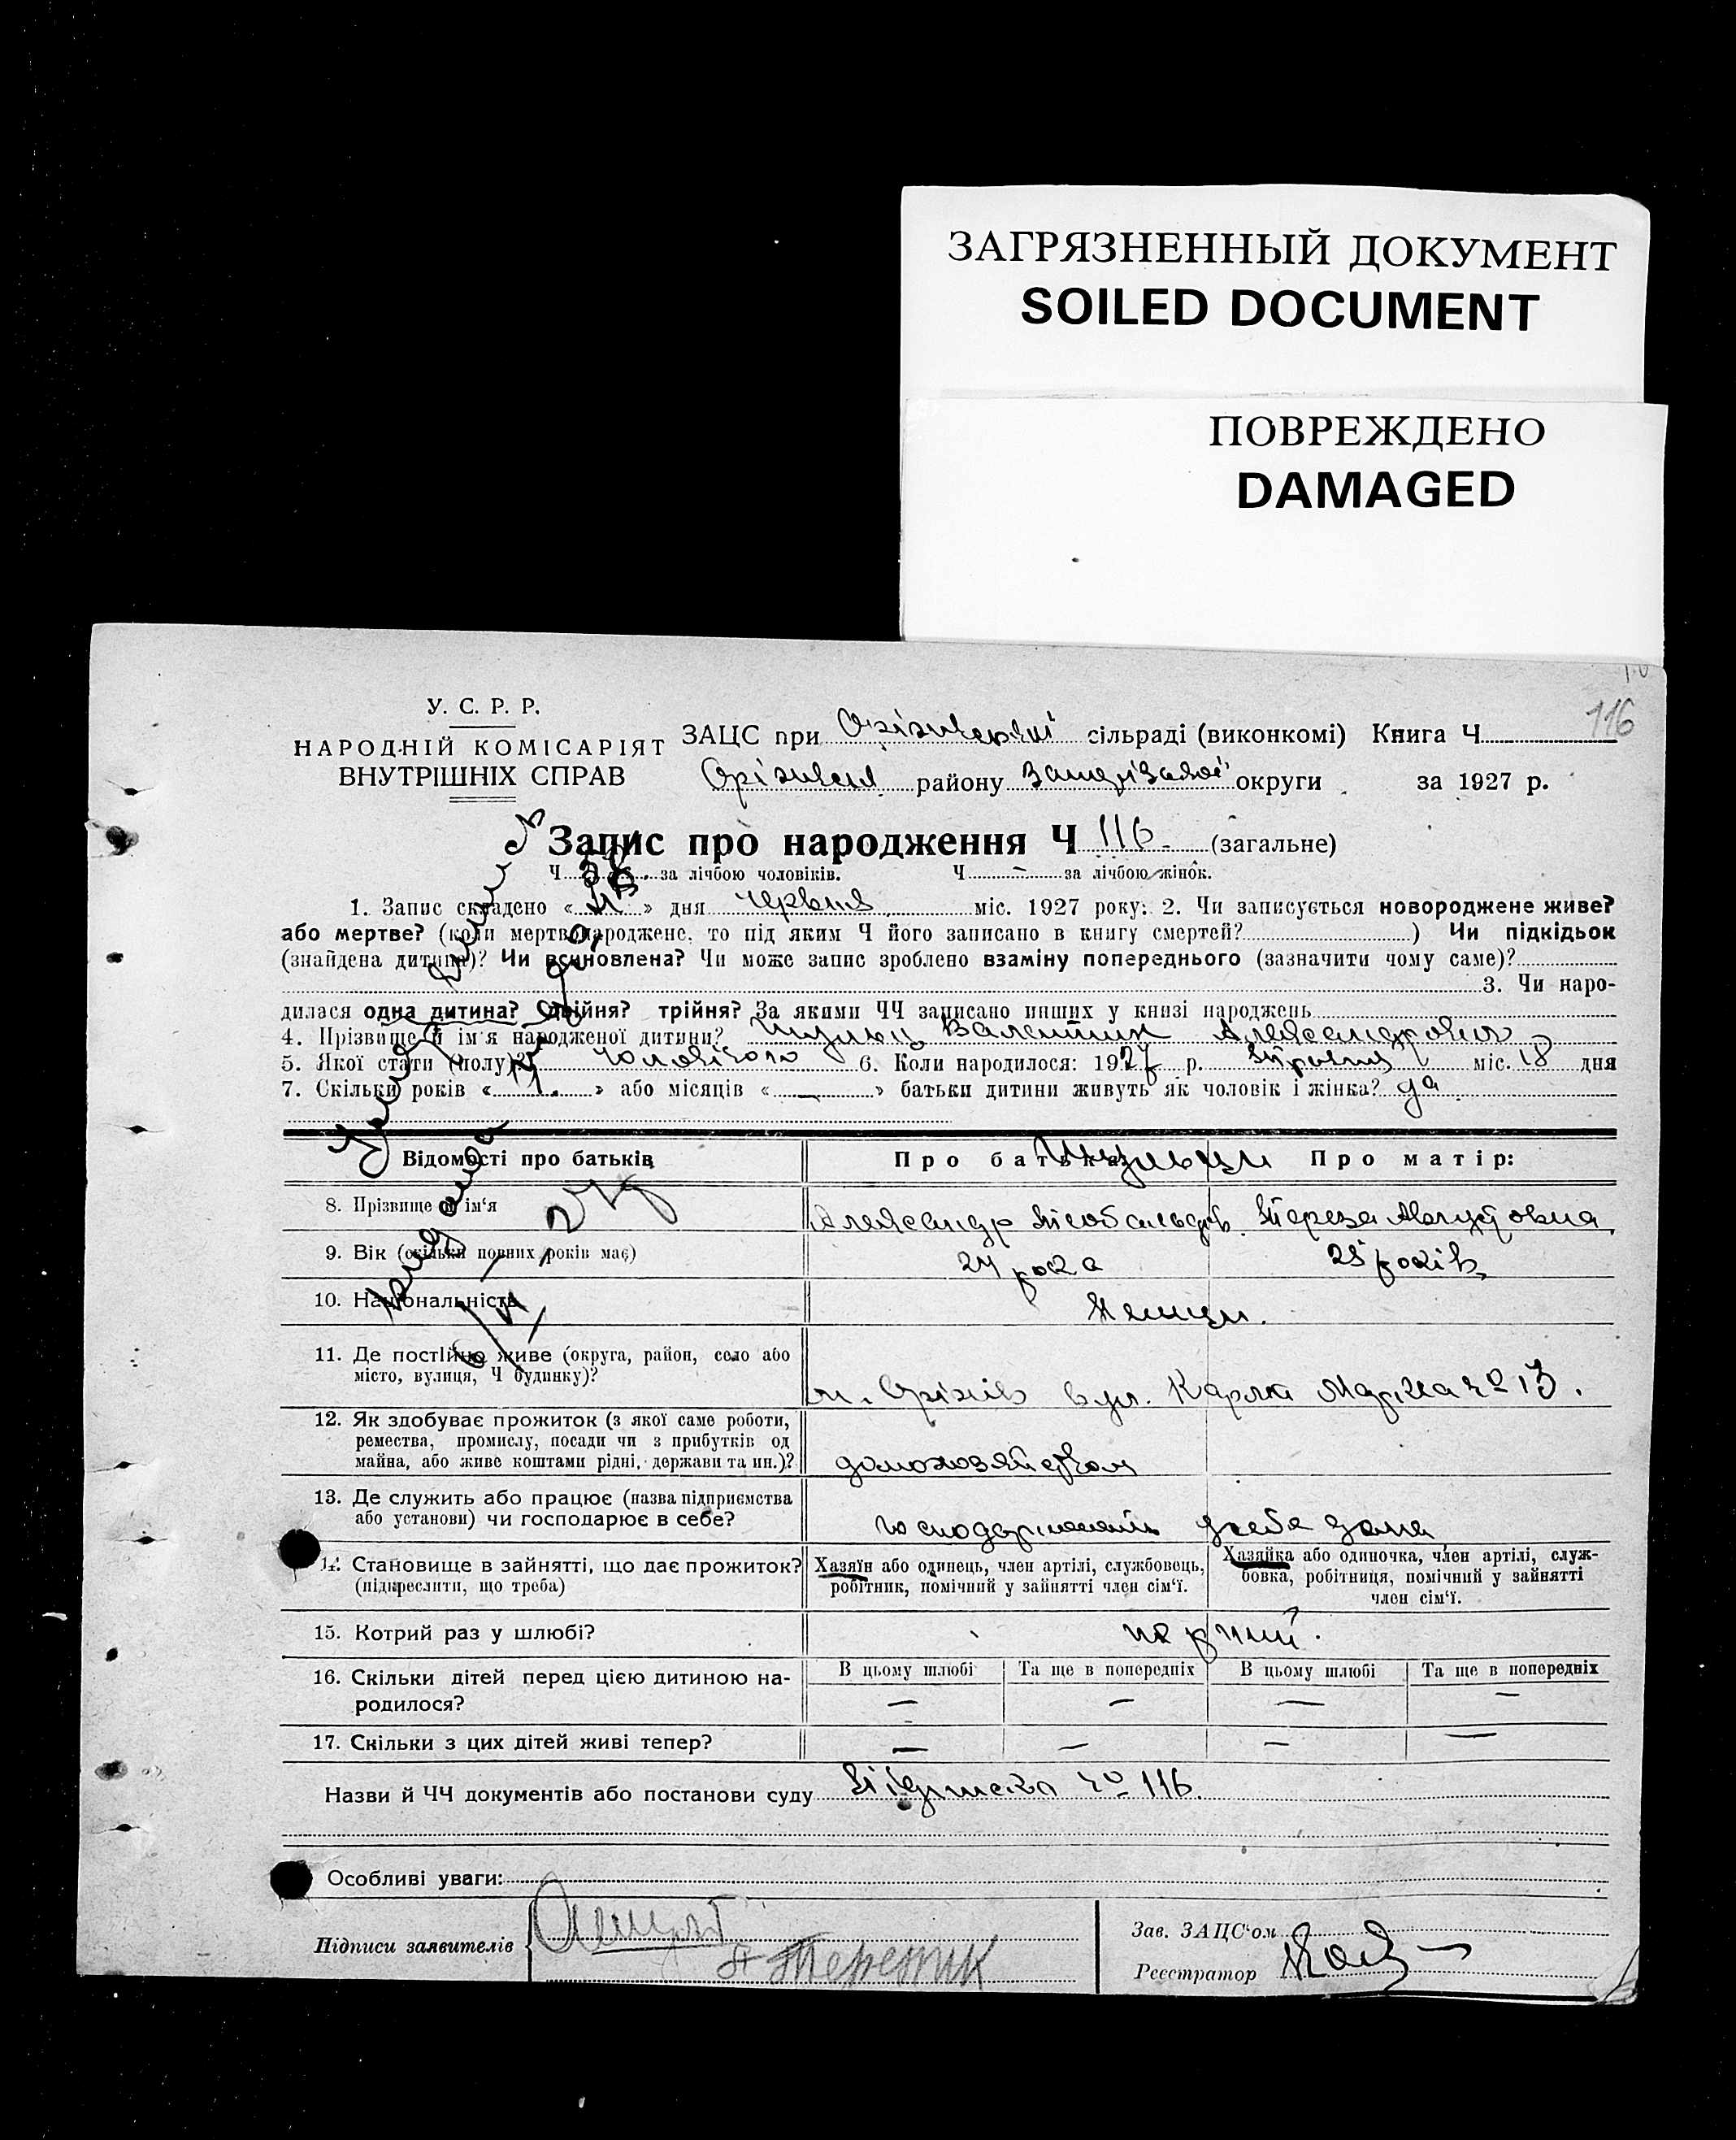 ЗАГРЯЗНЕННЫЙ ДОКУМЕНТ
SOILED DOCUMENT
ПОВРЕЖДЕНО
DAMAGED
116
У. С. Р. Р.
НАРОДНІЙ КОМІСАРІЯТ
ВНУТРІШНІХ СПРАВ
ЗАЦС при сільраді (виконкомі) Книга Ч
району округи за 1927 р.
Запис про народження Ч 116 (загальне)
Ч за лічбою чоловіків. Ч — за лічбою жінок.
1. Запис складено « » дня червня міс. 1927 року: 2. Чи записується новороджене живе?
або мертве? (коли мертвонароджене, то під яким Ч його записано в книгу смертей? ) Чи підкідьок
(знайдена дитина)? Чи всиновлена? Чи може запис зроблено взаміну попереднього (зазначити чому саме)?
3. Чи наро-
дилася одна дитина? Двійня? трійня? За якими ЧЧ записано инших у книзі народжень
4. Прізвище й ім'я народженої дитини? Шульц Валентин Александрович
5. Якої стати (полу)? чоловічого 6. Коли народилося: 1927 р. міс. 18 дня
7. Скільки років « 1. » або місяців « — » батьки дитини живуть як чоловік і жінка? да
Відомості про батьків Про батька: Шульци Про матір:
8. Прізвище й ім'я Александр Тереза Августовна
9. Вік (скільки повних років має) 24 рока 25 років
10. Національність Немци.
11. Де постійно живе (округа, район, село або
місто, вулиця, Ч будинку)? м. Оріхів вул. Карла Маркса № 13.
12. Як здобуває прожиток (з якої саме роботи,
ремества, промислу, посади чи з прибутків од
майна, або живе коштами рідні, держави та ин.)? домохозяйством
13. Де служить або працює (назва підприємства
або установи) чи господарює в себе? у себе дома
14. Становище в зайнятті, що дає прожиток?
(підкреслити, що треба)
Хазяїн або одинець, член артілі, службовець,
робітник, помічний у зайнятті член сім'ї.
Хазяйка або одиночка, член артілі, служ-
бовка, робітниця, помічний у зайнятті
член сім'ї.
15. Котрий раз у шлюбі? перший.
16. Скільки дітей перед цією дитиною на-
родилося?
В цьому шлюбі Та ще в попередніх В цьому шлюбі Та ще в попередніх
— — — —
17. Скільки з цих дітей живі тепер? — — — —
Назви й ЧЧ документів або постанови суду № 116.
Особливі уваги:
Підписи заявителів
Зав. ЗАЦС'ом
Реєстратор